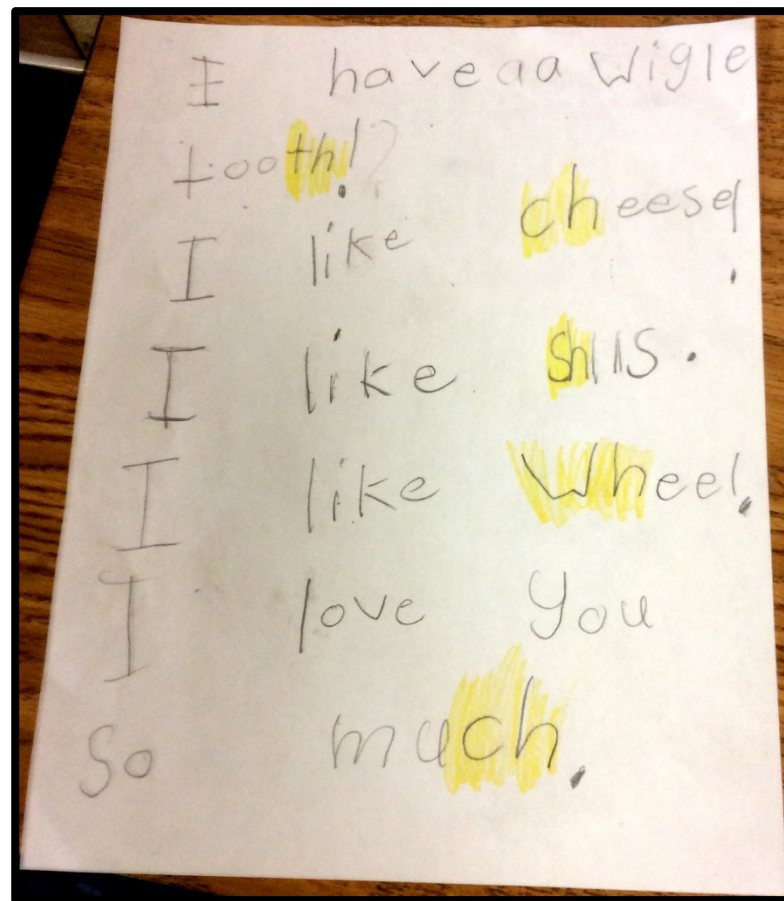 I have aa Wigle
tooth!?
I like cheese.
I like Shlls.
I like Wheel.
I love you
So much.